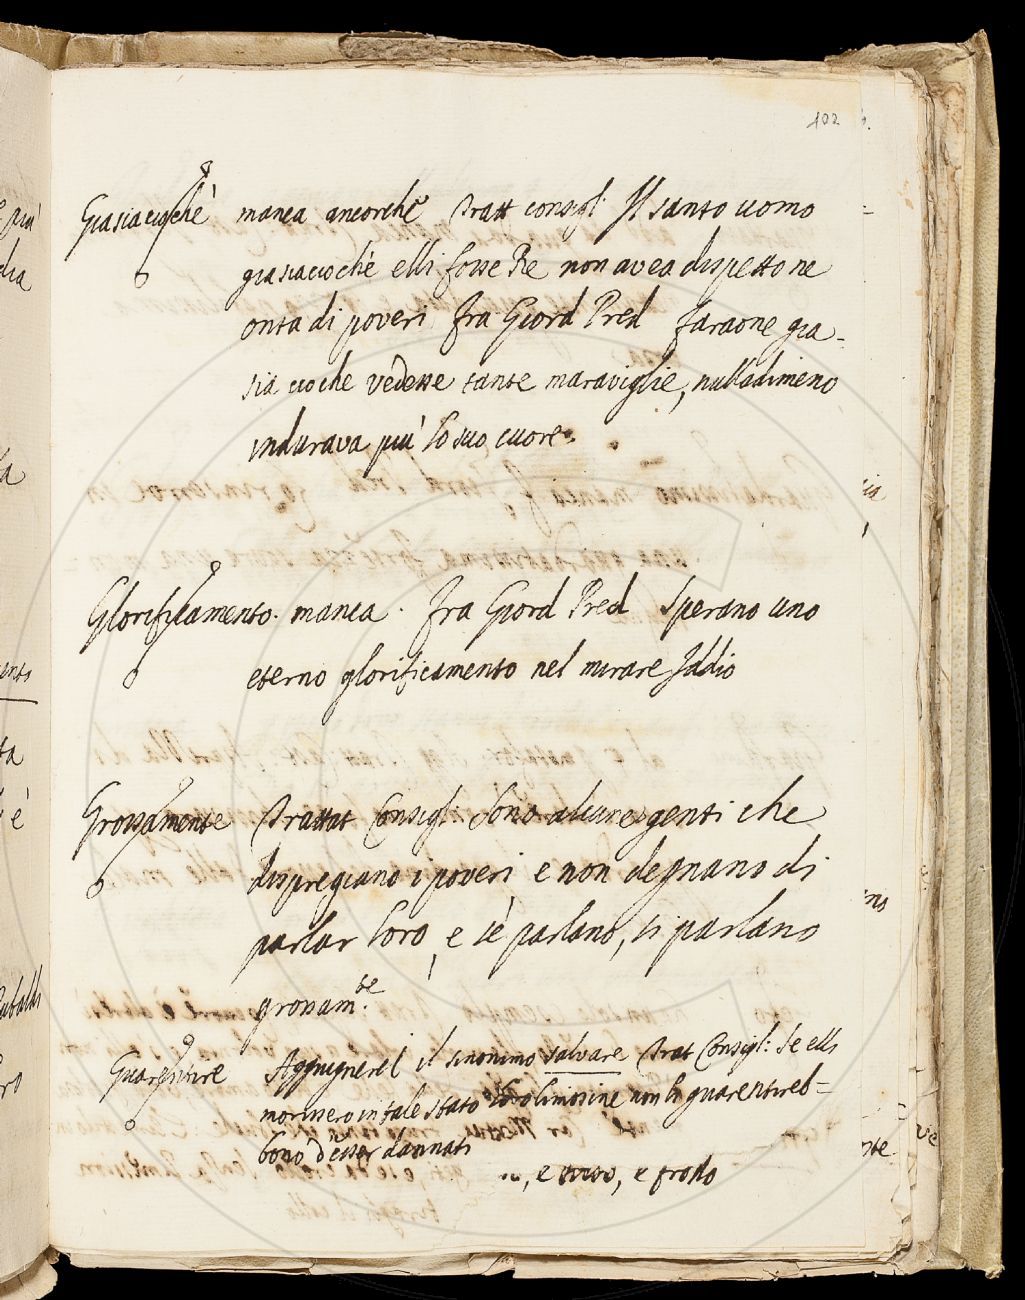 402
Giasiacioché manca ancorché Tratt consigl: Il santo uomo
giasiacioché elli fosse Re non avea dispetto ne
onta di poveri Fra Giord Pred faraone gia-
sia cioche vedesse tante maraviglie, nulladimeno
indurava più lo suo cuore.
Glorificamento. manca. Fra Giord Pred Sperano uno
eterno glorificamento nel mirare Iddio
Grossamente Trattat Consigl: Sono alcune genti che
dispregiano i poveri e non degnano di
parlar loro, e sè parlano, si parlano
grossam.te
Guarentire Aggiugnerei il sinonimo salvare Trat Consigl: Se elli
morissero in tale stato loro limosine non li guarentireb=
bono d'esser dannati
e frollo